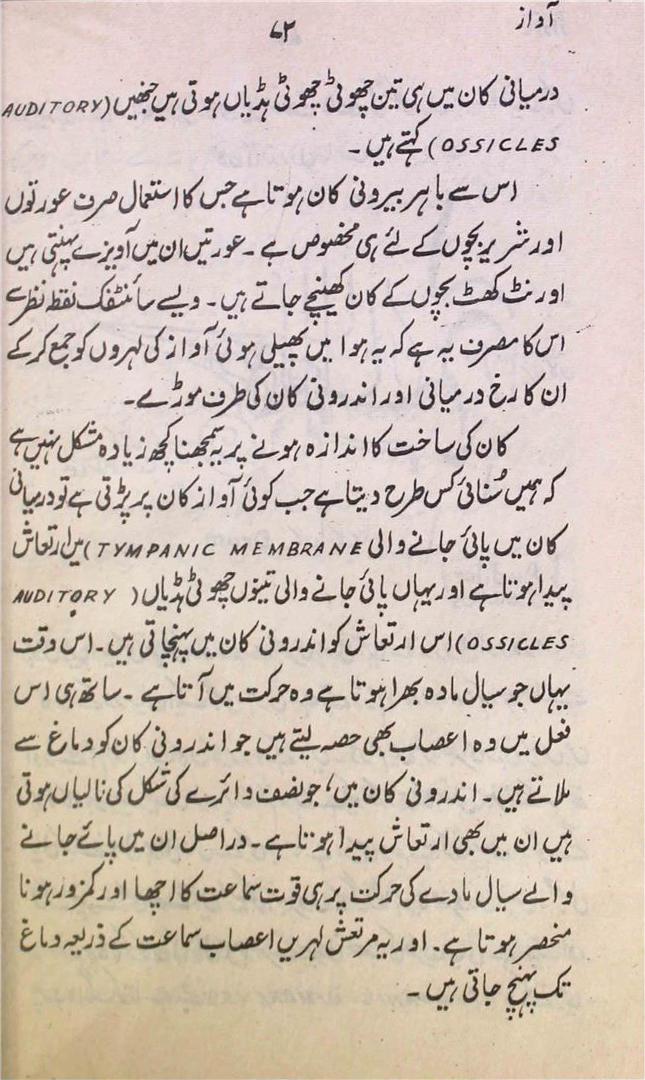 آواز
۷۲
درمیانی کان میں ہی تین چھوٹی چھوٹی ہڈیاں ہوتی ہیں جنھیں (AUDITORY
OSSICLES) کہتے ہیں۔
اس سے باہر بیرونی کان ہوتا ہے جس کا استعمال صرف عورتوں
اور شریر بچوں کے لئے ہی مخصوص ہے۔ عورتیں ان میں آویزے پہنتی ہیں
اور نٹ کھٹ بچوں کے کان کھینچے جاتے ہیں۔ ویسے سائنٹفک نقطہ نظر سے
اس کا مصرف یہ ہے کہ یہ ہوا میں پھیلی ہوئی آواز کی لہروں کو جمع کر کے
ان کا رخ درمیانی اور اندرونی کان کی طرف موڑ دے۔
کان کی ساخت کا اندازہ ہونے پر یہ سمجھنا کچھ زیادہ مشکل نہیں ہے
کہ ہمیں سُنائی کس طرح دیتا ہے جب کوئی آواز کان پر پڑتی ہے تو درمیانی
کان میں پائی جانے والی TYMPANIC MEMBRANE) میں ارتعاش
پیدا ہوتا ہے اور یہاں پائی جانے والی تینوں چھوٹی ہڈیاں (AUDITORY
OSSICLES) اس ارتعاش کو اندرونی کان میں پہنچاتی ہیں۔ اس وقت
یہاں جو سیال مادہ بھرا ہوتا ہے وہ حرکت میں آتا ہے۔ ساتھ ہی اس
فعل میں وہ اعصاب بھی حصہ لیتے ہیں جو اندرونی کان کو دماغ سے
ملاتے ہیں۔ اندرونی کان میں، جو نصف دائرے کی شکل کی نالیاں ہوتی
ہیں ان میں بھی ارتعاش پیدا ہوتا ہے۔ دراصل ان میں پائے جانے
والے سیال مادے کی حرکت پر ہی قوت سماعت کا اچھا اور کمزور ہونا
منحصر ہوتا ہے۔ اور یہ مرتعش لہریں اعصاب سماعت کے ذریعہ دماغ
تک پہنچ جاتی ہیں۔